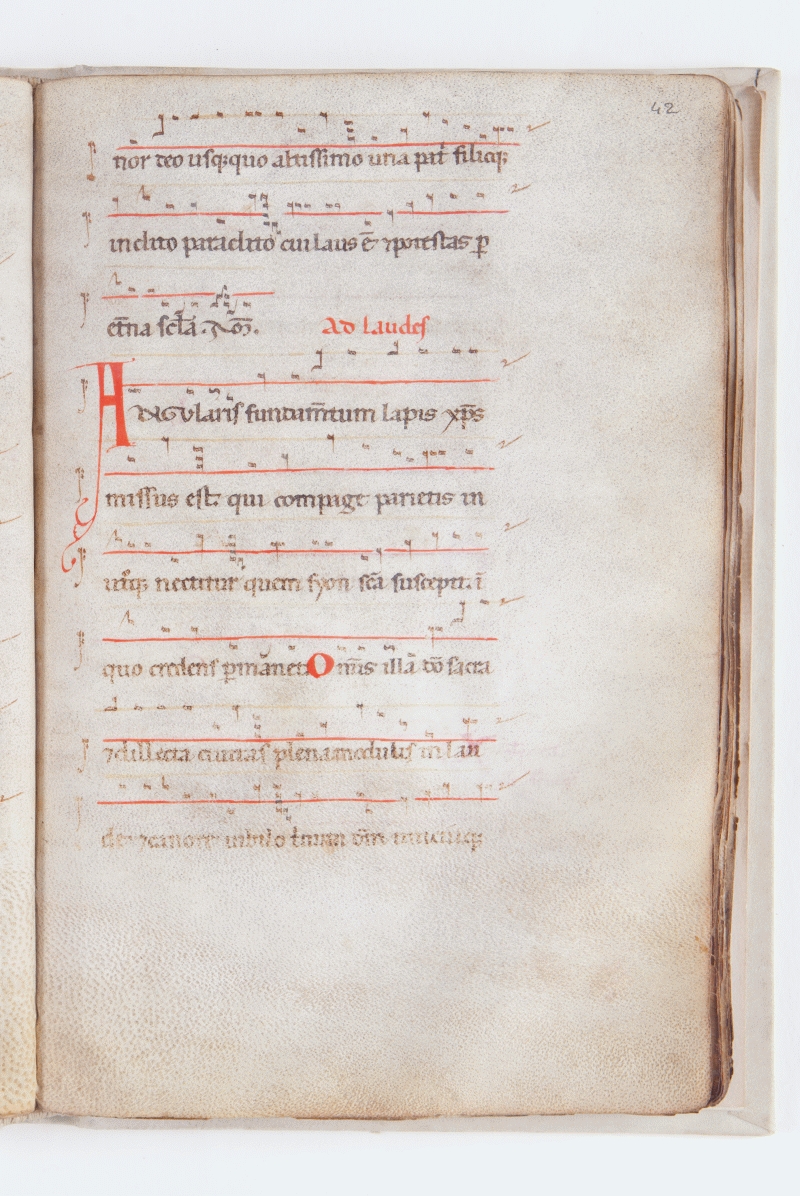 42
nor deo usq;quo altissimo una patͥ filioq;
inclito paraclito cui laus ē ⁊potestas ꝑ
et̄na sc̄la. 
Ad laudes
Angularis fundam̄tum lapis xp̄s
missus est qui compage parietis in
utͦq; nectitur quem syon sc̄a suscepit. ī
quo credens ꝑmanet. Om̄is illa dō sacra
⁊dillecta ciuitas plena modulis in lau
de ⁊canore iubilo